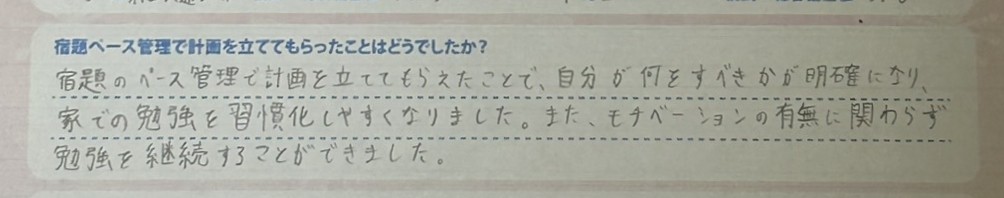 宿題ペース管理で計画を立ててもらったことはどうでしたか?
宿題のペース管理で計画を立ててもらえたことで、自分が何をすべきかが明確になり、
家での勉強を習慣化しやすくなりました。また、モチベーションの有無に関わらず
勉強を継続することができました。